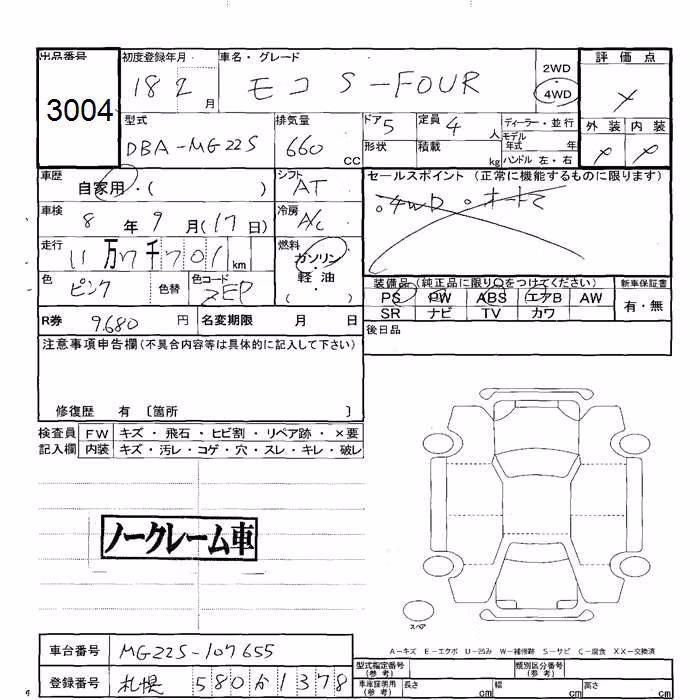 出品番号 初度登録年月 車名・グレード 評価点
3004 18 2 月 モコ S-FOUR 2WD 4WD
外装 内装
型式 排気量 ドア 5 定員 4 人 ディーラー・並行
DBA-MG22S 660 CC 形状 積載 kg モデル年式 年
ハンドル 左・右
車歴 自家用・( ) シフト AT セールスポイント (正常に機能するものに限ります)
車検 8 年 9 月(17日) 冷房 A/C ○4WD ○オートマ
走行 11万7千701 km 燃料 ガソリン・軽油・( )
色 ピンク 色替 色コード ZEP
装備品 (純正品に限り○をつけてください) 新車保証書
PS PW ABS エアB AW 有・無
SR ナビ TV カワ
R券 9,680 円 名変期限 月 日 後日品
注意事項申告欄(不具合内容等は具体的に記入して下さい)
修復歴 有 〔箇所 〕
検査員記入欄 FW キズ・飛石・ヒビ割・リペア跡・×要
内装 キズ・汚レ・コゲ・穴・スレ・キレ・破レ
ノークレーム車
スペア
A-キズ E-エクボ U-凹み W-補修跡 S-サビ C-腐食 XX-交換済
車台番号 MG22S-107655 型式指定番号(参考) 類別区分番号(参考)
登録番号 札幌 580か1378 車庫証明用(参考) 長さ cm 幅 cm 高さ cm